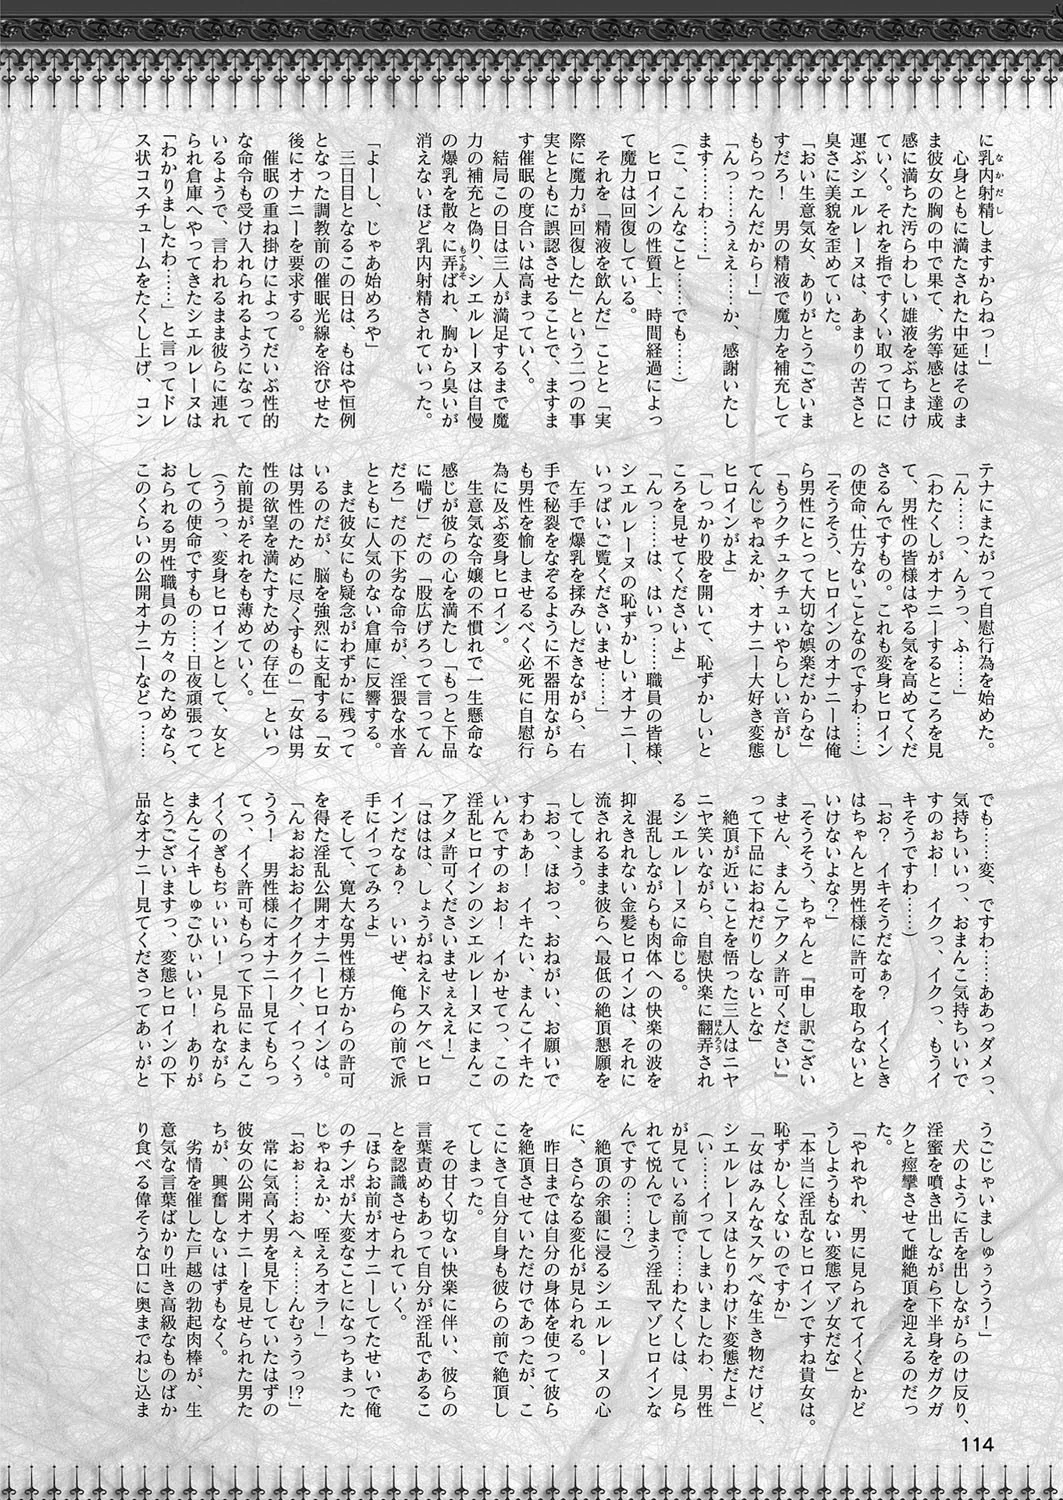 に乳内射精しますからねっ！」
なかだし
　心身ともに満たされた中延はそのま
ま彼女の胸の中で果て、劣等感と達成
感に満ちた汚らわしい雄液をぶちまけ
ていく。それを指ですくい取って口に
運ぶシエルレーヌは、あまりの苦さと
臭さに美貌を歪めていた。
「おい生意気女、ありがとうございま
すだろ！　男の精液で魔力を補充して
もらったんだから！」
「んっ……うぇえ……か、感謝いたし
ます……わ……」
（こ、こんなこと……でも……）
　ヒロインの性質上、時間経過によっ
て魔力は回復している。
　それを「精液を飲んだ」ことと「実
際に魔力が回復した」という二つの事
実とともに誤認させることで、ますま
す催眠の度合いは高まっていく。
　結局この日は三人が満足するまで魔
力の補充と偽り、シエルレーヌは自慢
の爆乳を散々に弄ばれ、胸から臭いが
もてあそ
消えないほど乳内射精されていった。
「よーし、じゃあ始めろや」
　三日目となるこの日は、もはや恒例
となった調教前の催眠光線を浴びせた
後にオナニーを要求する。
　催眠の重ね掛けによってだいぶ性的
な命令も受け入れられるようになって
いるようで、言われるまま彼らに連れ
られ倉庫へやってきたシエルレーヌは
「わかりましたわ……」と言ってドレ
ス状コスチュームをたくし上げ、コン
テナにまたがって自慰行為を始めた。
「ん……っ、んうっ、ふ……」
（わたくしがオナニーするところを見
て、男性の皆様はやる気を高めてくだ
さるんですもの。これも変身ヒロイン
の使命、仕方ないことなのですわ……）
「そうそう、ヒロインのオナニーは俺
ら男性にとって大切な娯楽だからな」
「もうクチュクチュいやらしい音がし
てんじゃねえか、オナニー大好き変態
ヒロインがよ」
「しっかり股を開いて、恥ずかしいと
ころを見せてくださいよ」
「んっ……は、はいっ……職員の皆様、
シエルレーヌの恥ずかしいオナニー、
いっぱいご覧くださいませ……」
　左手で爆乳を揉みしだきながら、右
手で秘裂をなぞるように不器用ながら
も男性を愉しませるべく必死に自慰行
為に及ぶ変身ヒロイン。
　生意気な令嬢の不慣れで一生懸命な
感じが彼らの心を満たし「もっと下品
に喘げ」だの「股広げろって言ってん
だろ」だの下劣な命令が、淫猥な水音
とともに人気のない倉庫に反響する。
　まだ彼女にも疑念がわずかに残って
いるのだが、脳を強烈に支配する「女
は男性のために尽くすもの」「女は男
性の欲望を満たすための存在」といっ
た前提がそれをも薄めていく。
（ううっ、変身ヒロインとして、女と
しての使命ですもの……日夜頑張って
おられる男性職員の方々のためなら、
このくらいの公開オナニーなどっ……
でも……変、ですわ……ああっダメっ、
気持ちいいっ、おまんこ気持ちいいで
すのぉお！　イクっ、イクっ、もうイ
キそうですわ……）
「お？　イキそうだなぁ？　イくとき
はちゃんと男性様に許可を取らないと
いけないよな？」
「そうそう、ちゃんと『申し訳ござい
ません、まんこアクメ許可ください』
って下品におねだりしないとな」
　絶頂が近いことを悟った三人はニヤ
ニヤ笑いながら、自慰快楽に翻弄され
ほんろう
るシエルレーヌに命じる。
　混乱しながらも肉体への快楽の波を
抑えきれない金髪ヒロインは、それに
流されるまま彼らへ最低の絶頂懇願を
してしまう。
「おっ、ほおっ、おねがい、お願いで
すわぁあ！　イキたい、まんこイキた
いんですのぉお！　イかせてっ、この
淫乱ヒロインのシエルレーヌにまんこ
アクメ許可くださいませぇええ！」
「ははは、しょうがねえドスケベヒロ
インだなぁ？　いいぜ、俺らの前で派
手にイってみろよ」
　そして、寛大な男性様方からの許可
を得た淫乱公開オナニーヒロインは。
「んぉおおおイクイクイク、イっくぅ
うう！　男性様にオナニー見てもらっ
てっ、イく許可もらって下品にまんこ
イくのぎもぢぃいい！　見られながら
まんこイキしゅごひぃいい！　ありが
とうございますっ、変態ヒロインの下
品なオナニー見てくださってあぃがと
うごじゃいましゅぅうう！」
　犬のように舌を出しながらのけ反り、
淫蜜を噴き出しながら下半身をガクガ
クと痙攣させて雌絶頂を迎えるのだっ
た。
「やれやれ、男に見られてイくとかど
うしようもない変態マゾ女だな」
「本当に淫乱なヒロインですね貴女は。
恥ずかしくないのですか」
「女はみんなスケベな生き物だけど、
シエルレーヌはとりわけド変態だよ」
（い……イってしまいましたわ、男性
が見ている前で……わたくしは、見ら
れて悦んでしまう淫乱マゾヒロインな
んですの……？）
　絶頂の余韻に浸るシエルレーヌの心
に、さらなる変化が見られる。
　昨日までは自分の身体を使って彼ら
を絶頂させていただけであったが、こ
こにきて自分自身も彼らの前で絶頂し
てしまった。
　その甘く切ない快楽に伴い、彼らの
言葉責めもあって自分が淫乱であるこ
とを認識させられていく。
「ほらお前がオナニーしてたせいで俺
のチンポが大変なことになっちまった
じゃねえか、咥えろオラ！」
「おぉ……おへぇ……んむぅうっ!?」
　常に気高く男を見下していたはずの
彼女の公開オナニーを見せられた男た
ちが、興奮しないはずもなく。
　劣情を催した戸越の勃起肉棒が、生
意気な言葉ばかり吐き高級なものばか
り食べる偉そうな口に奥までねじ込ま
114